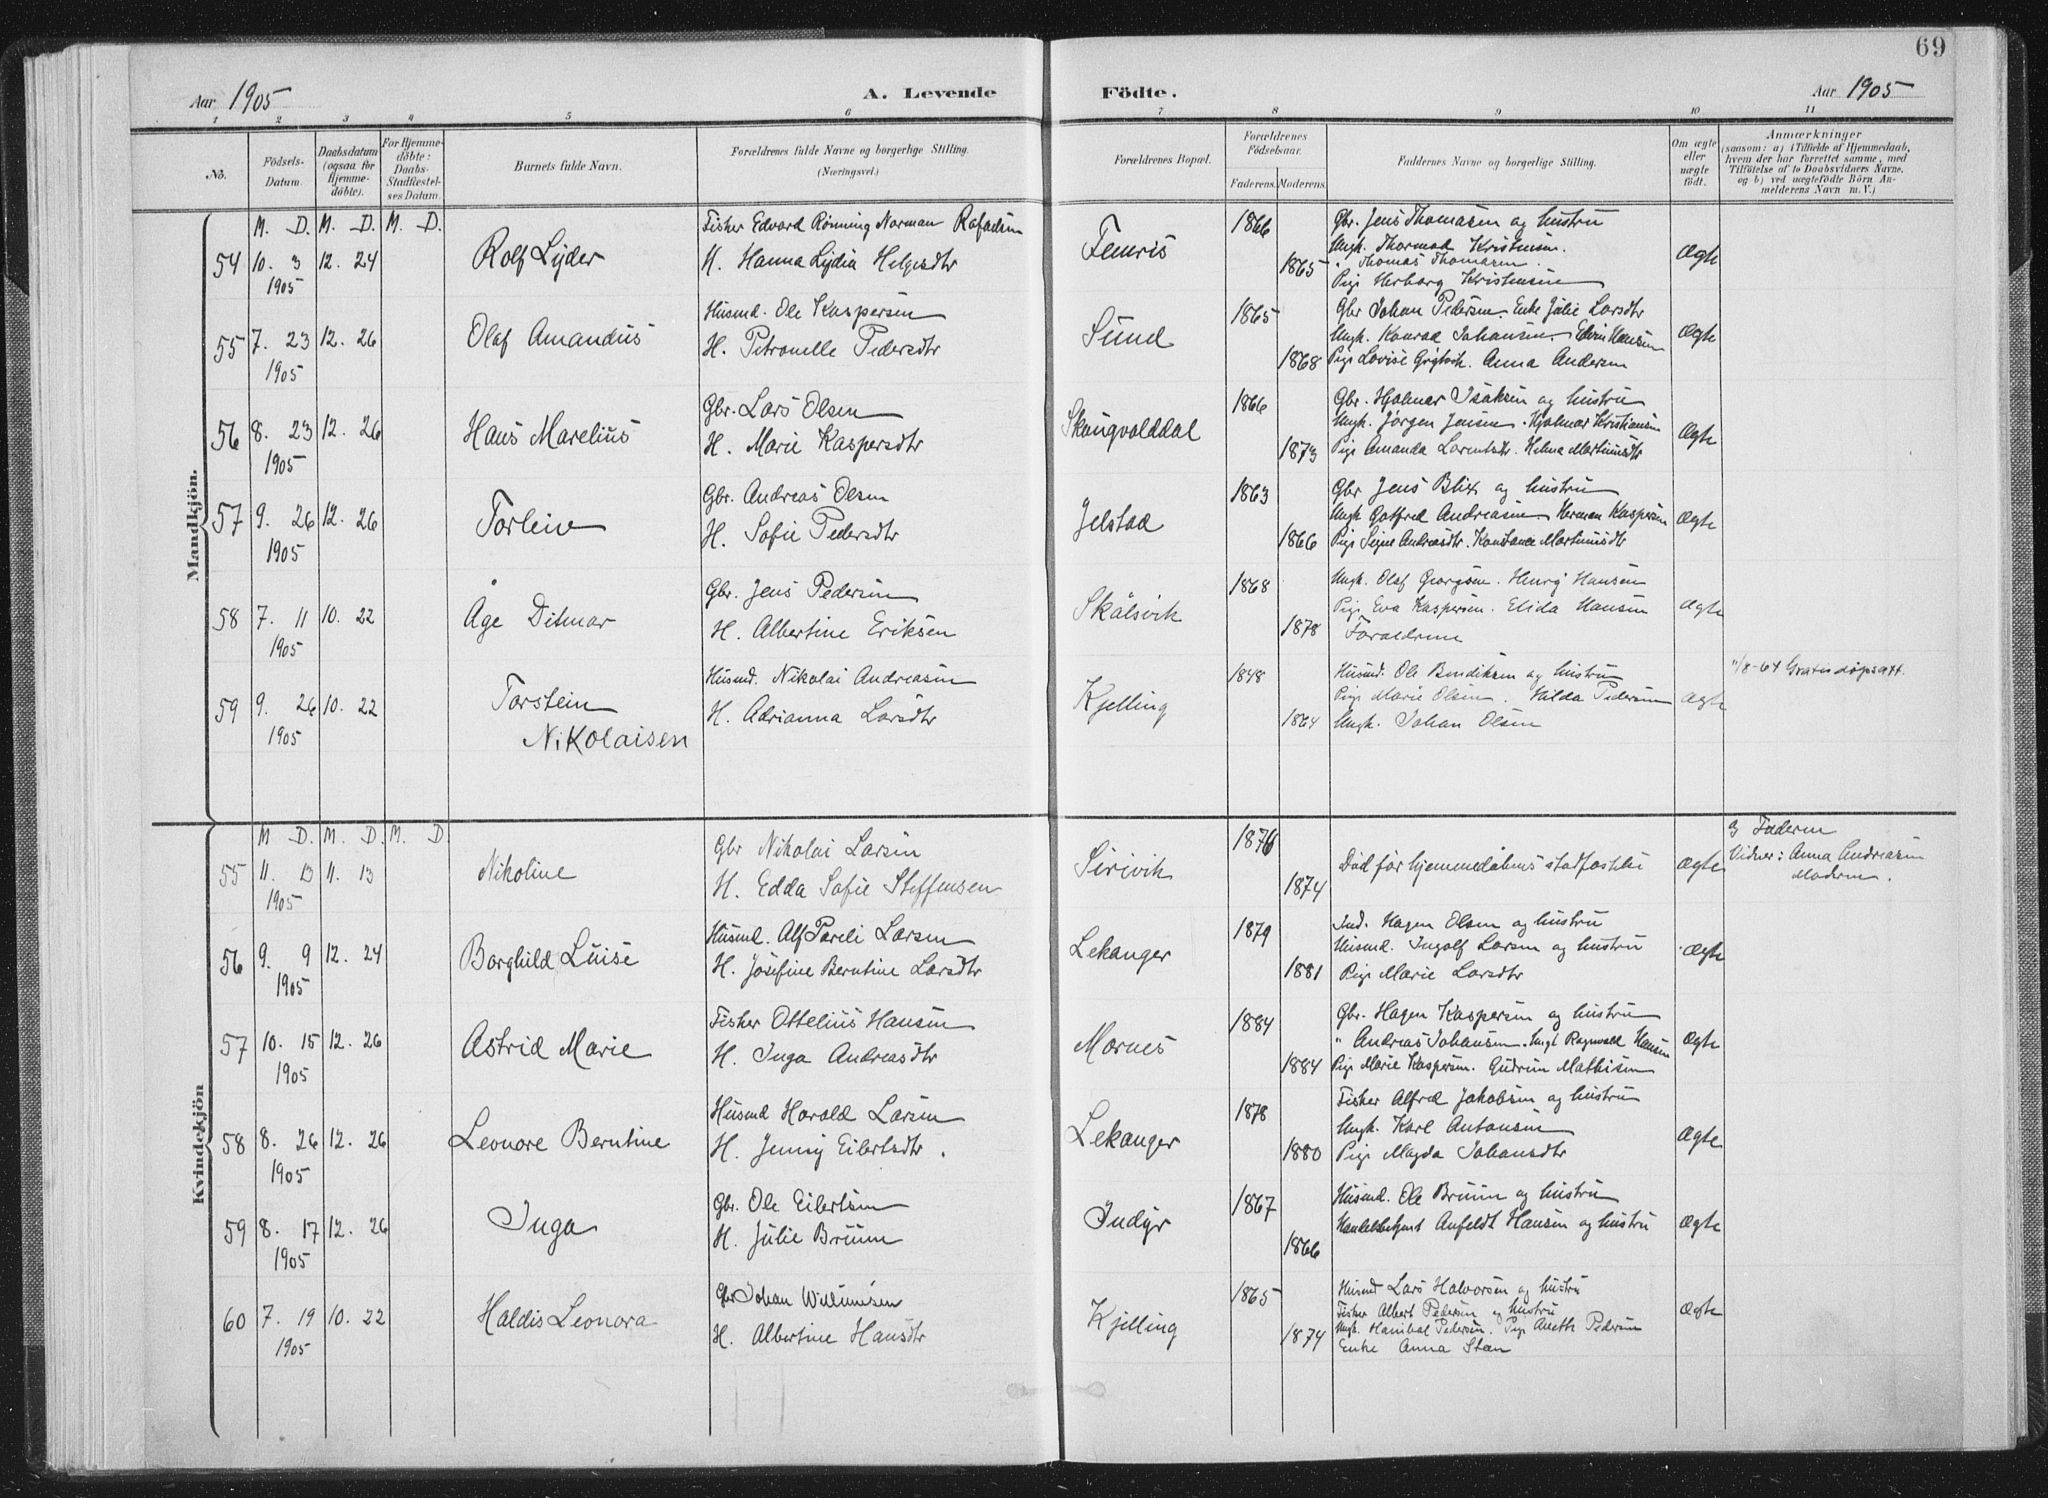 69
Aar 1905
A. Levende
Födte.
Aar 1905
1 2 3 4 5 6 7 8 9 10 11
No.
Födsels-
Datum.
Daabsdatum
(ogsaa for
Hjemme-
döbte).
For Hjemme-
döbte:
Daabs-
Stadfæstel-
ses Datum.
Barnets fulde Navn.
Forældrenes fulde Navne og borgerlige Stilling.
(Næringsvei.)
Forældrenes Bopæl.
Forældrenes
Födselsaar.
Faderens. Moderens.
Faddernes Navne og borgerlige Stilling.
Om ægte
eller
uægte
födt.
Anmærkninger
(saasom: a) i Tilfælde af Hjemmedaab,
hvem der har forrettet samme, med
Tilföielse af to Daabsvidners Navne.
og b) ved uægtefödte Börn An-
melderens Navn m. V.)
Mandkjön.
M. D. M. D. M. D.
54 10. 3 12. 24
1905
Rolf Lyder
Fisker Edvard Rönning Norman Rafaelsen
H. Hanna Lydia Helgesdtr
Femris
1866
1865
Gbr. Jens Thomasen og hustru
Ungk. Thormod Kristensen.
" Thomas Thomasen.
Pige Herborg Kristensen
Ægte
55 7. 23 12. 26
1905
Olaf Amandus
Husmd. Ole Kaspersen
H. Petronelle Pedersdtr
Sund
1865
1868
Gbr Johan Pedersen. Enke Julie Larsdtr
Ungk. Konrad Johansen. Edvin Hansen
Pige Lovise Grytvik. Anna Andersen
Ægte
56 8. 23 12. 26
1905
Hans Marelius
Gbr. Lars Olsen
H. Marie Kaspersdtr
Skaugvolddal
1866
1873
Gbr. Hjalmar Isaksen og hustru
Ungk. Jørgen Jensen. Hjalmar Kristiansen
Pige Amanda Lorentsdtr. Helma Martinusdtr
Ægte
57 9. 26 12. 26
1905
Torleiv
Gbr. Andreas Olsen
H. Sofie Pedersdtr
Jelstad
1863
1866
Gbr Jens Blix og hustru
Ungk Gotfred Andreasen. Herman Kaspersen
Pige Signe Andreasdtr. Konstance Martinusdtr
Ægte
58 7. 11 10. 22
1905
Åge Ditmar
Gbr. Jens Pedersen
H. Albertine Eriksen
Skålsvik
1868
1878
Ungk. Olaf Georgsen. Henry Hansen
Pige Eva Kaspersen. Elida Hansen
Forældrene
Ægte
59 9. 26 10. 22
1905
Torstein
Nikolaisen
Husmd. Nikolai Andreasen
H. Adrianna Larsdtr
Kjelling
1848
1864
Husmd. Ole Bendiksen og hustru
Pige Marie Olsen. Valda Pedersen
Ungk. Johan Olsen
Ægte
11/8-64 Gratis döpsatt.
Kvindekjön
M D. M. D. M. D
55 11. 13 11. 13
1905
Nikoline
Gbr Nikolai Larsen
H. Edda Sofie Steffensen
Sirivik
1876
1874
Död för hjemmedåbens stadfæstelse
Ægte
a) Faderen
Vidner: Anna Andreasen
Moderen.
56 9. 9 12. 24
1905
Borghild Luise
Husmd. Alf Pareli Larsen
H. Josefine Berntine Larsdtr
Lekanger
1879
1881
Ind. Hagen Olsen og hustru
Husmd. Ingolf Larsen og hustru
Pige Marie Larsdtr
Ægte
57 10. 15 12. 26
1905
Astrid Marie
Fisker Ottelius Hansen
H. Inga Andreasdtr
Mornes
1884
1884
Gbr. Hagen Kaspersen og hustru
" Andreas Johansen. Ungk Ragnvald Hansen
Pige Marie Kaspersen. Gudrun Mathisen
Ægte
58 8. 26 12. 26
1905
Leonore Berntine
Husmd Harald Larsen
H. Jenny Eilertsdtr.
Lekanger
1878
1880
Fisker Alfred Jakobsen og hustru
Ungk. Karl Antonsen
Pige Magda Johansdtr
Ægte
59 8. 17 12. 26
1905
Inga
Gbr. Ole Eilertsen
H. Julie Bruun
Indyr
1867
1866
Husmd. Ole Bruun og hustru
Handelsbetjent Anfeldt Hansen og hustru
Ægte
60 7. 19 10. 22
1905
Haldis Leonora
Gbr Johan Willumsen
H. Albertine Hansdtr
Kjelling
1865
1874
Husmd Lars Halvorsen og hustru
Fisker Albert Pedersen og hustru
Ungk. Hanibal Pedersen. Pige Anette Pedersen
Enke Anna Støen
Ægte